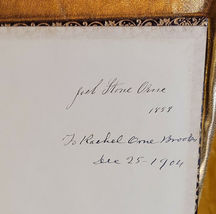 Joel Stone Orne
1859
To Rachel Orne Brooks
Dec 25-1904